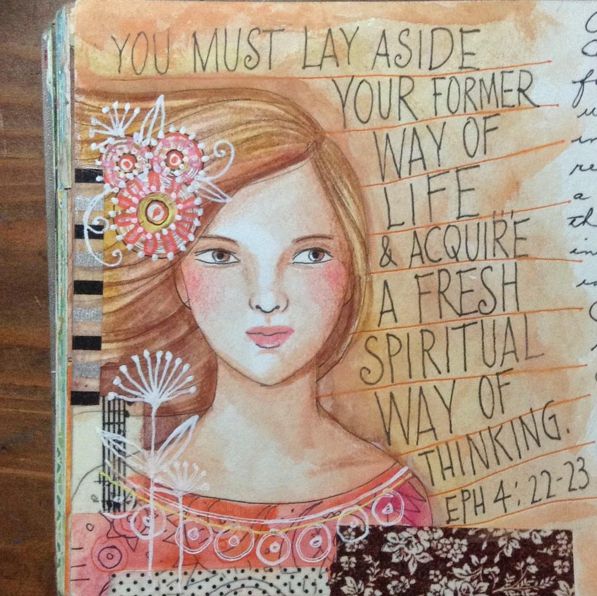 YOU MUST LAY ASIDE
YOUR FORMER
WAY OF
LIFE...
& ACQUIRE
A FRESH
SPIRITUAL
WAY OF
THINKING.
EPH 4:22-23